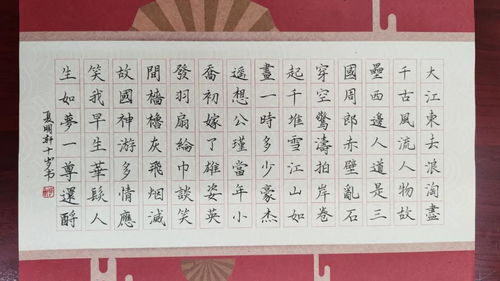 大江東去浪淘盡
千古風流人物故
壘西邊人道是三
國周郎赤壁亂石
穿空驚濤拍岸卷
起千堆雪江山如
畫一時多少豪杰
遥想公瑾當年小
喬初嫁了雄姿英
發羽扇綸巾談笑
間檣櫓灰飛烟滅
故國神游多情應
笑我早生華髮人
生如夢一尊還酹
十岁书